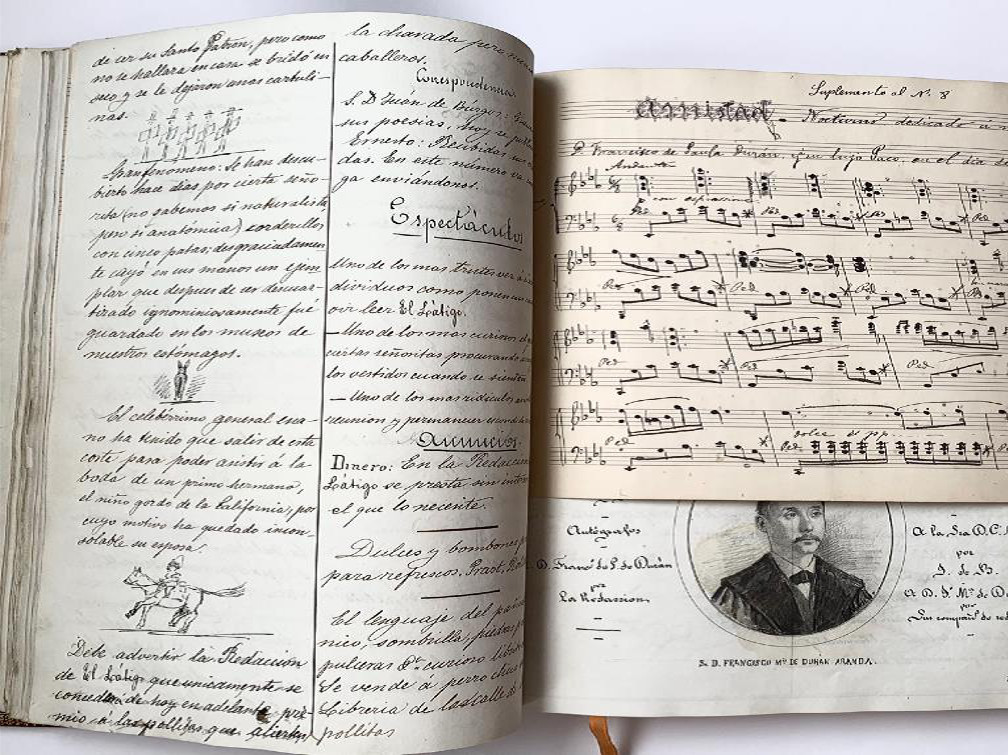 de ver su Santo Patron, pero como
no se hallara en casa se brindó en
seco y se le dejaron unas cartuli-
nas.
Gran fenomeno: Se han descu-
bierto hace dias por cierta seño-
rita (no sabemos si naturalista
pero si anatomica) corderillos
con cinco patas; desgraciadamen
te cayó en sus manos un ejem
plar que despues de ser descuar-
tizado ignominiosamente fué
guardado en los museos de
nuestros estómagos.
El celebérrimo general ena-
no ha tenido que salir de esta
corte para poder asistir á la
boda de un primo hermano,
el niño gordo de la California, por
cuyo motivo ha quedado incon-
solable su esposa.
Debe advertir la Redacion
de El Látigo que unicamente se
concederá de hoy en adelante pre
mio á las pollitas que
la charada pero
caballeros.
Correspondencia
S. D. de Búrgos:
sus poesias, hoy se
Ernesto: Recibidas
das. En este número va
ga enviándonos.
Espectáculos
Uno de los mas tristes ver á
dividuos como ponen
oir leer El Látigo.
— Uno de los mas curiosos
ciertas señoritas procurando
los vestidos cuando se sientan
— Uno de los mas ridiculos
reunion y permanecer
Anuncios
Dinero: En la Redaccion
Látigo se presta sin
el que lo necesite.
Dulces y bombones
para refrescos. Prast,
El lenguaje del
nico, sombrilla, piedras
pulseras &ª curioso
Se vende á perro chico
Libreria de la calle de
pollitas
Suplemento al N. 8
Amistad.
- Nocturno dedicado á
D. Francisco de Paula Durán, y su hijo Paco, en el dia de
Andante
con espresione
Ped
Ped
Ped
Ped
Ped
Ped
Ped
Ped
Ped
Ped
Ped
Ped
dolce
pp.
Ped
Autógrafos
D. Franco de P. de Durán
por
La Redassion.
A la Sra D. C.
por
J. de B.
A D. J. Mª de D
por
Sus
S. D. FRANCISCO Mª DE DURAN ARANDA.